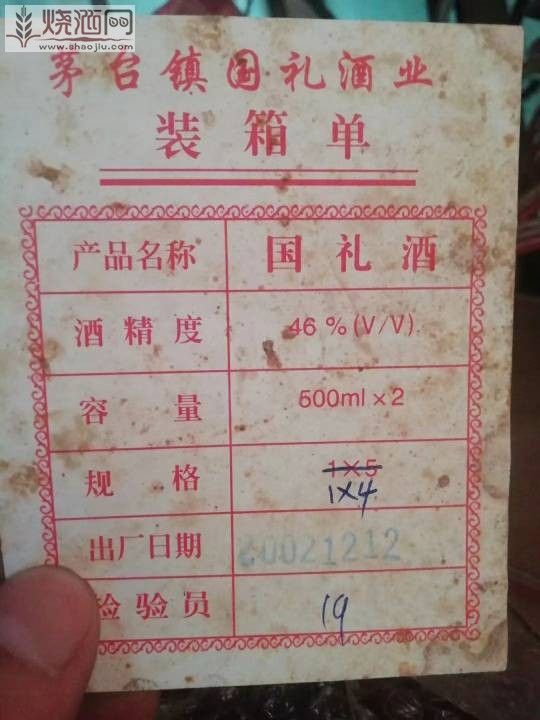 烧酒网
www.shaojiu.com
茅台镇国礼酒业
装箱单
产品名称 国礼酒
酒精度 46 % (V/V)
容量 500ml × 2
规格 1×5
1×4
出厂日期 20021212
检验员 19